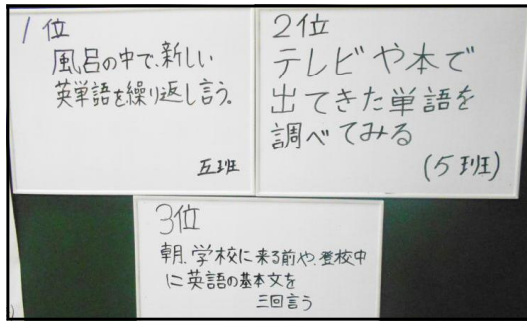 1位
風呂の中で、新しい
英単語を繰り返し言う。
五班
2位
テレビや本で
出てきた単語を
調べてみる
(5班)
3位
朝、学校に来る前や、登校中
に英語の基本文を
三回言う